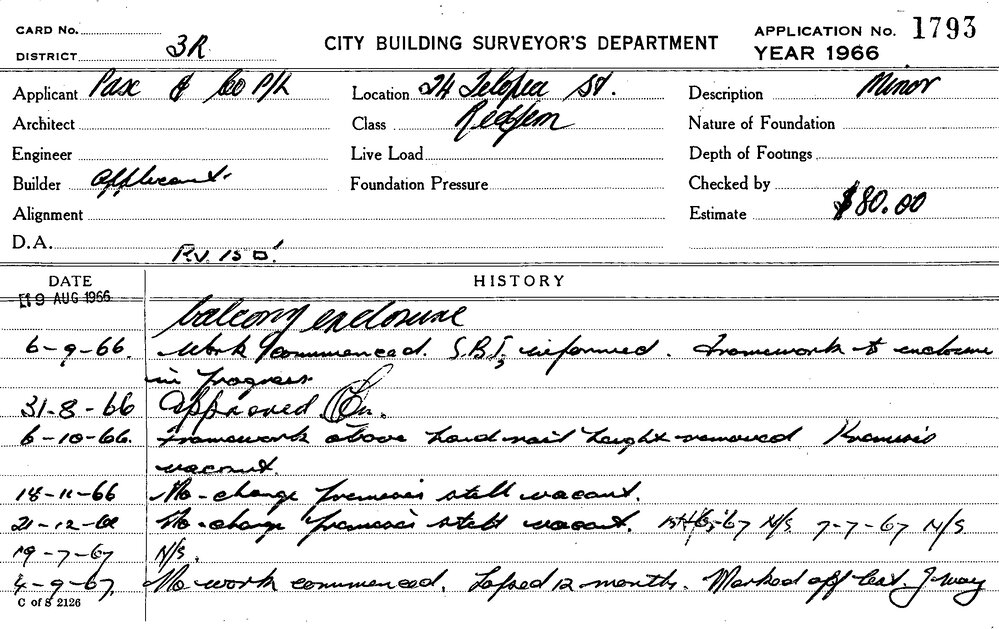 CARD No.
DISTRICT 3R
CITY BUILDING SURVEYOR'S DEPARTMENT
APPLICATION No. 1793
YEAR 1966
Applicant Pax & Co P/L
Location 24 Telopea St.
Description Minor
Architect
Class Redfern
Nature of Foundation
Engineer
Live Load
Depth of Footings
Builder applicant.
Foundation Pressure
Checked by
Alignment
Estimate $80.00
D.A.
P.V. 15
DATE HISTORY
19 AUG 1966
balcony enclosure
6-9-66. Work commenced. S.B.I. informed. Framework to enclose
in progress
31-8-66 Approved
6-10-66. Framework above hand rail height removed Premises
vacant.
18-11-66 No change premises still vacant.
21-12-66 No change premises still vacant. N/S 7-7-67 N/S
19-7-67 N/S.
4-9-67. No work commenced. Lapsed 12 months. Marked off
C of S 2126